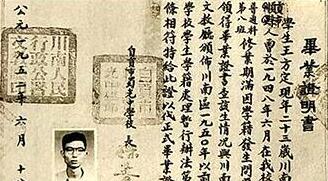 畢業證明書
學生王方定現年二十三歲川南
人曾於一九四八年六月在我校
普通科第八班修業期滿因學籍發生問
領得畢業證書查該生情況與川南
文教廳頒佈川南區一九五〇年以前
學校學生學籍處理暫行辦法第
條相符特給此證以代正式畢業
自貢市蜀光中學校 校長
公元一九五一年六月十
川南人民行政公署